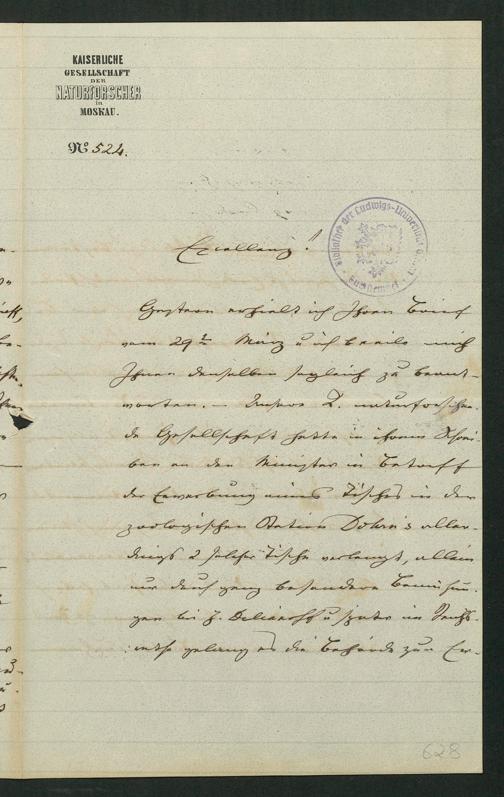 KAISERLICHE
GESELLSCHAFT
DER
NATURFORSCHER
in
MOSKAU.
No 524.
Bibliothek der Ludwigs-Universität
Excellenz!
Gestern erhielt ich Ihren Brief
vom 29ten März u ich beeile mich
Ihnen denselben sogleich zu beant-
worten. – Unsere K. naturforschen-
de Gesellschaft hatte in ihrem Schrei-
ben an den Minister in Betreff
der Erwerbung eines Tisches in der
zoologischen Station Dohrn's aller-
dings 2 solcher Tische verlangt, allein
nur durch ganz besondere Bemühun-
gen bei H. Delianoff u später im
gelang es die Behörde zur Er-
628